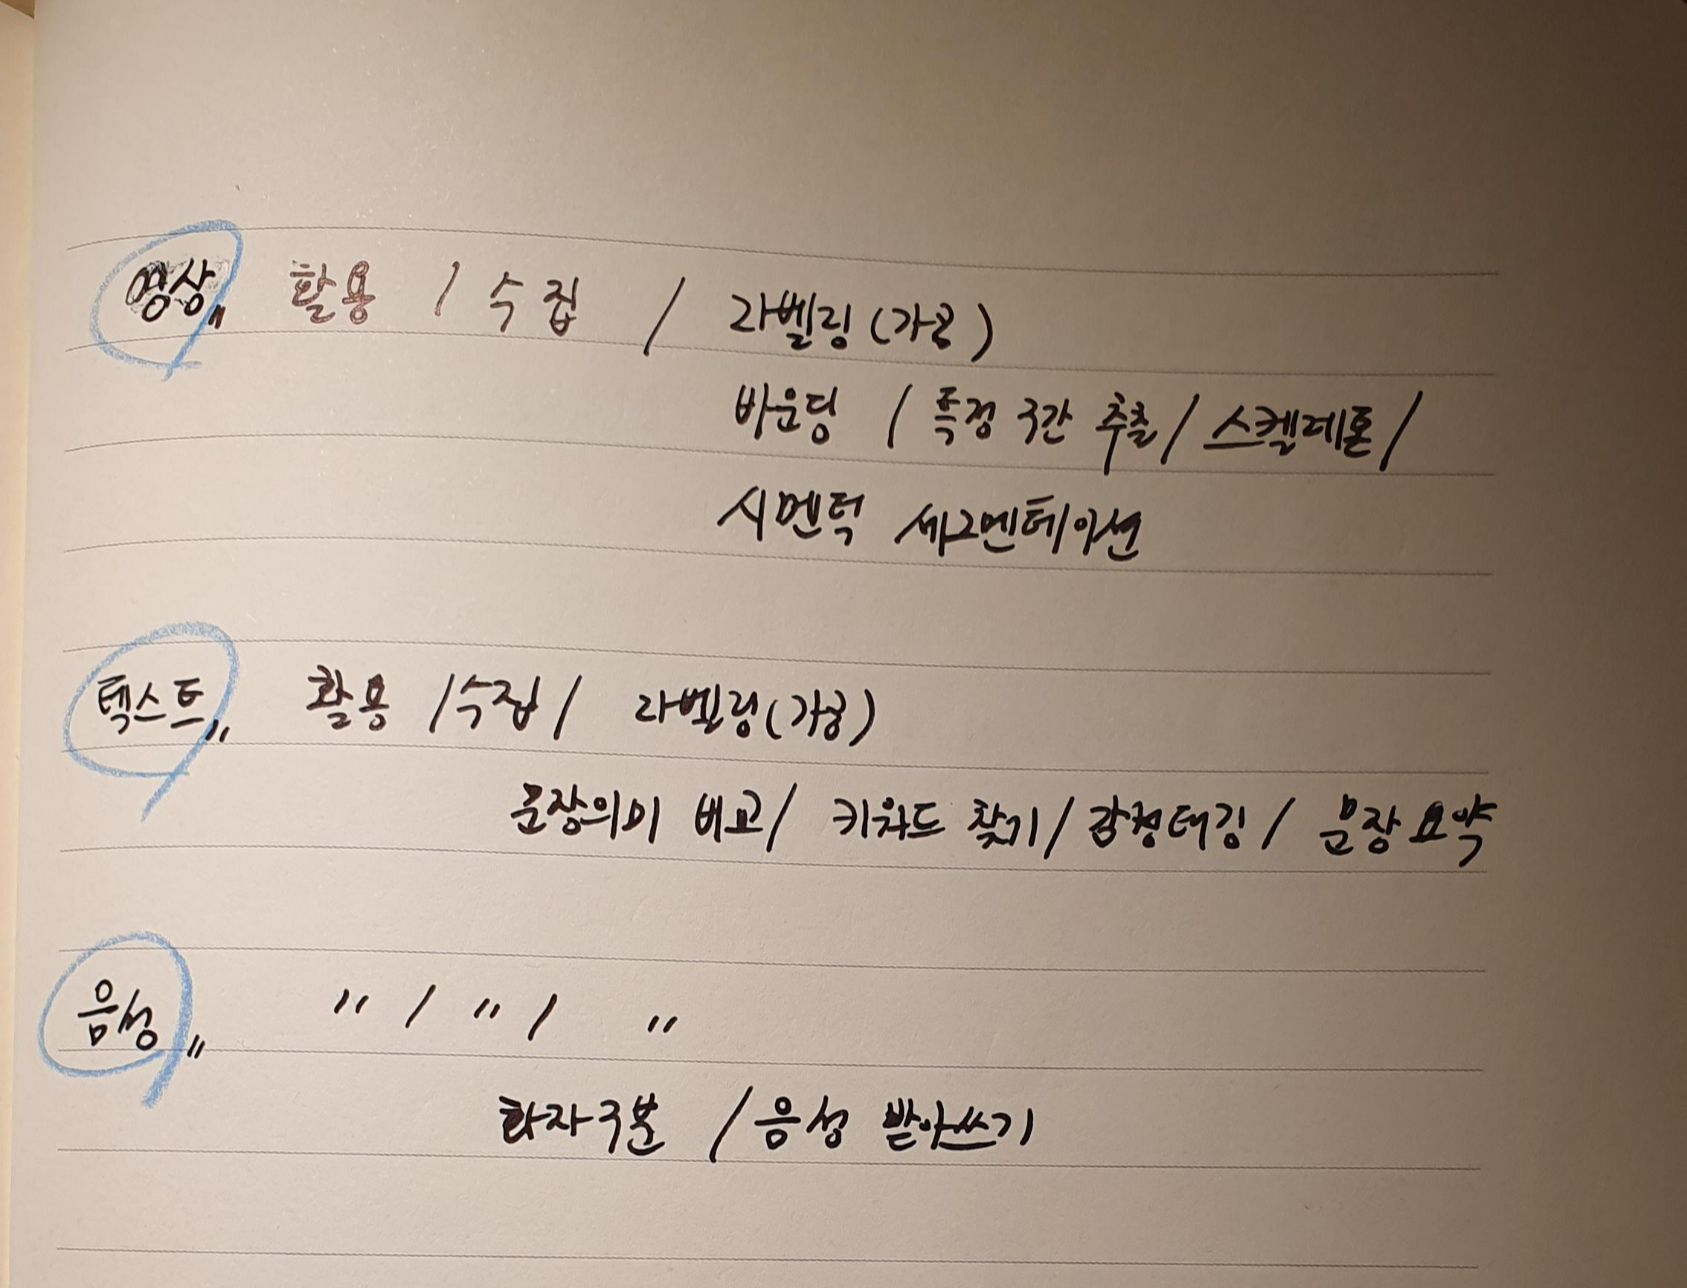 영상〃 활용 / 수집 / 라벨링(가공)
바운딩 / 특정 구간 추출 / 스켈레톤 /
시멘틱 세그멘테이션
텍스트〃 활용 / 수집 / 라벨링(가공)
문장의미 비교 / 키워드 찾기 / 감정태깅 / 문장요약
음성〃 〃 / 〃 / 〃
화자구분 / 음성 받아쓰기